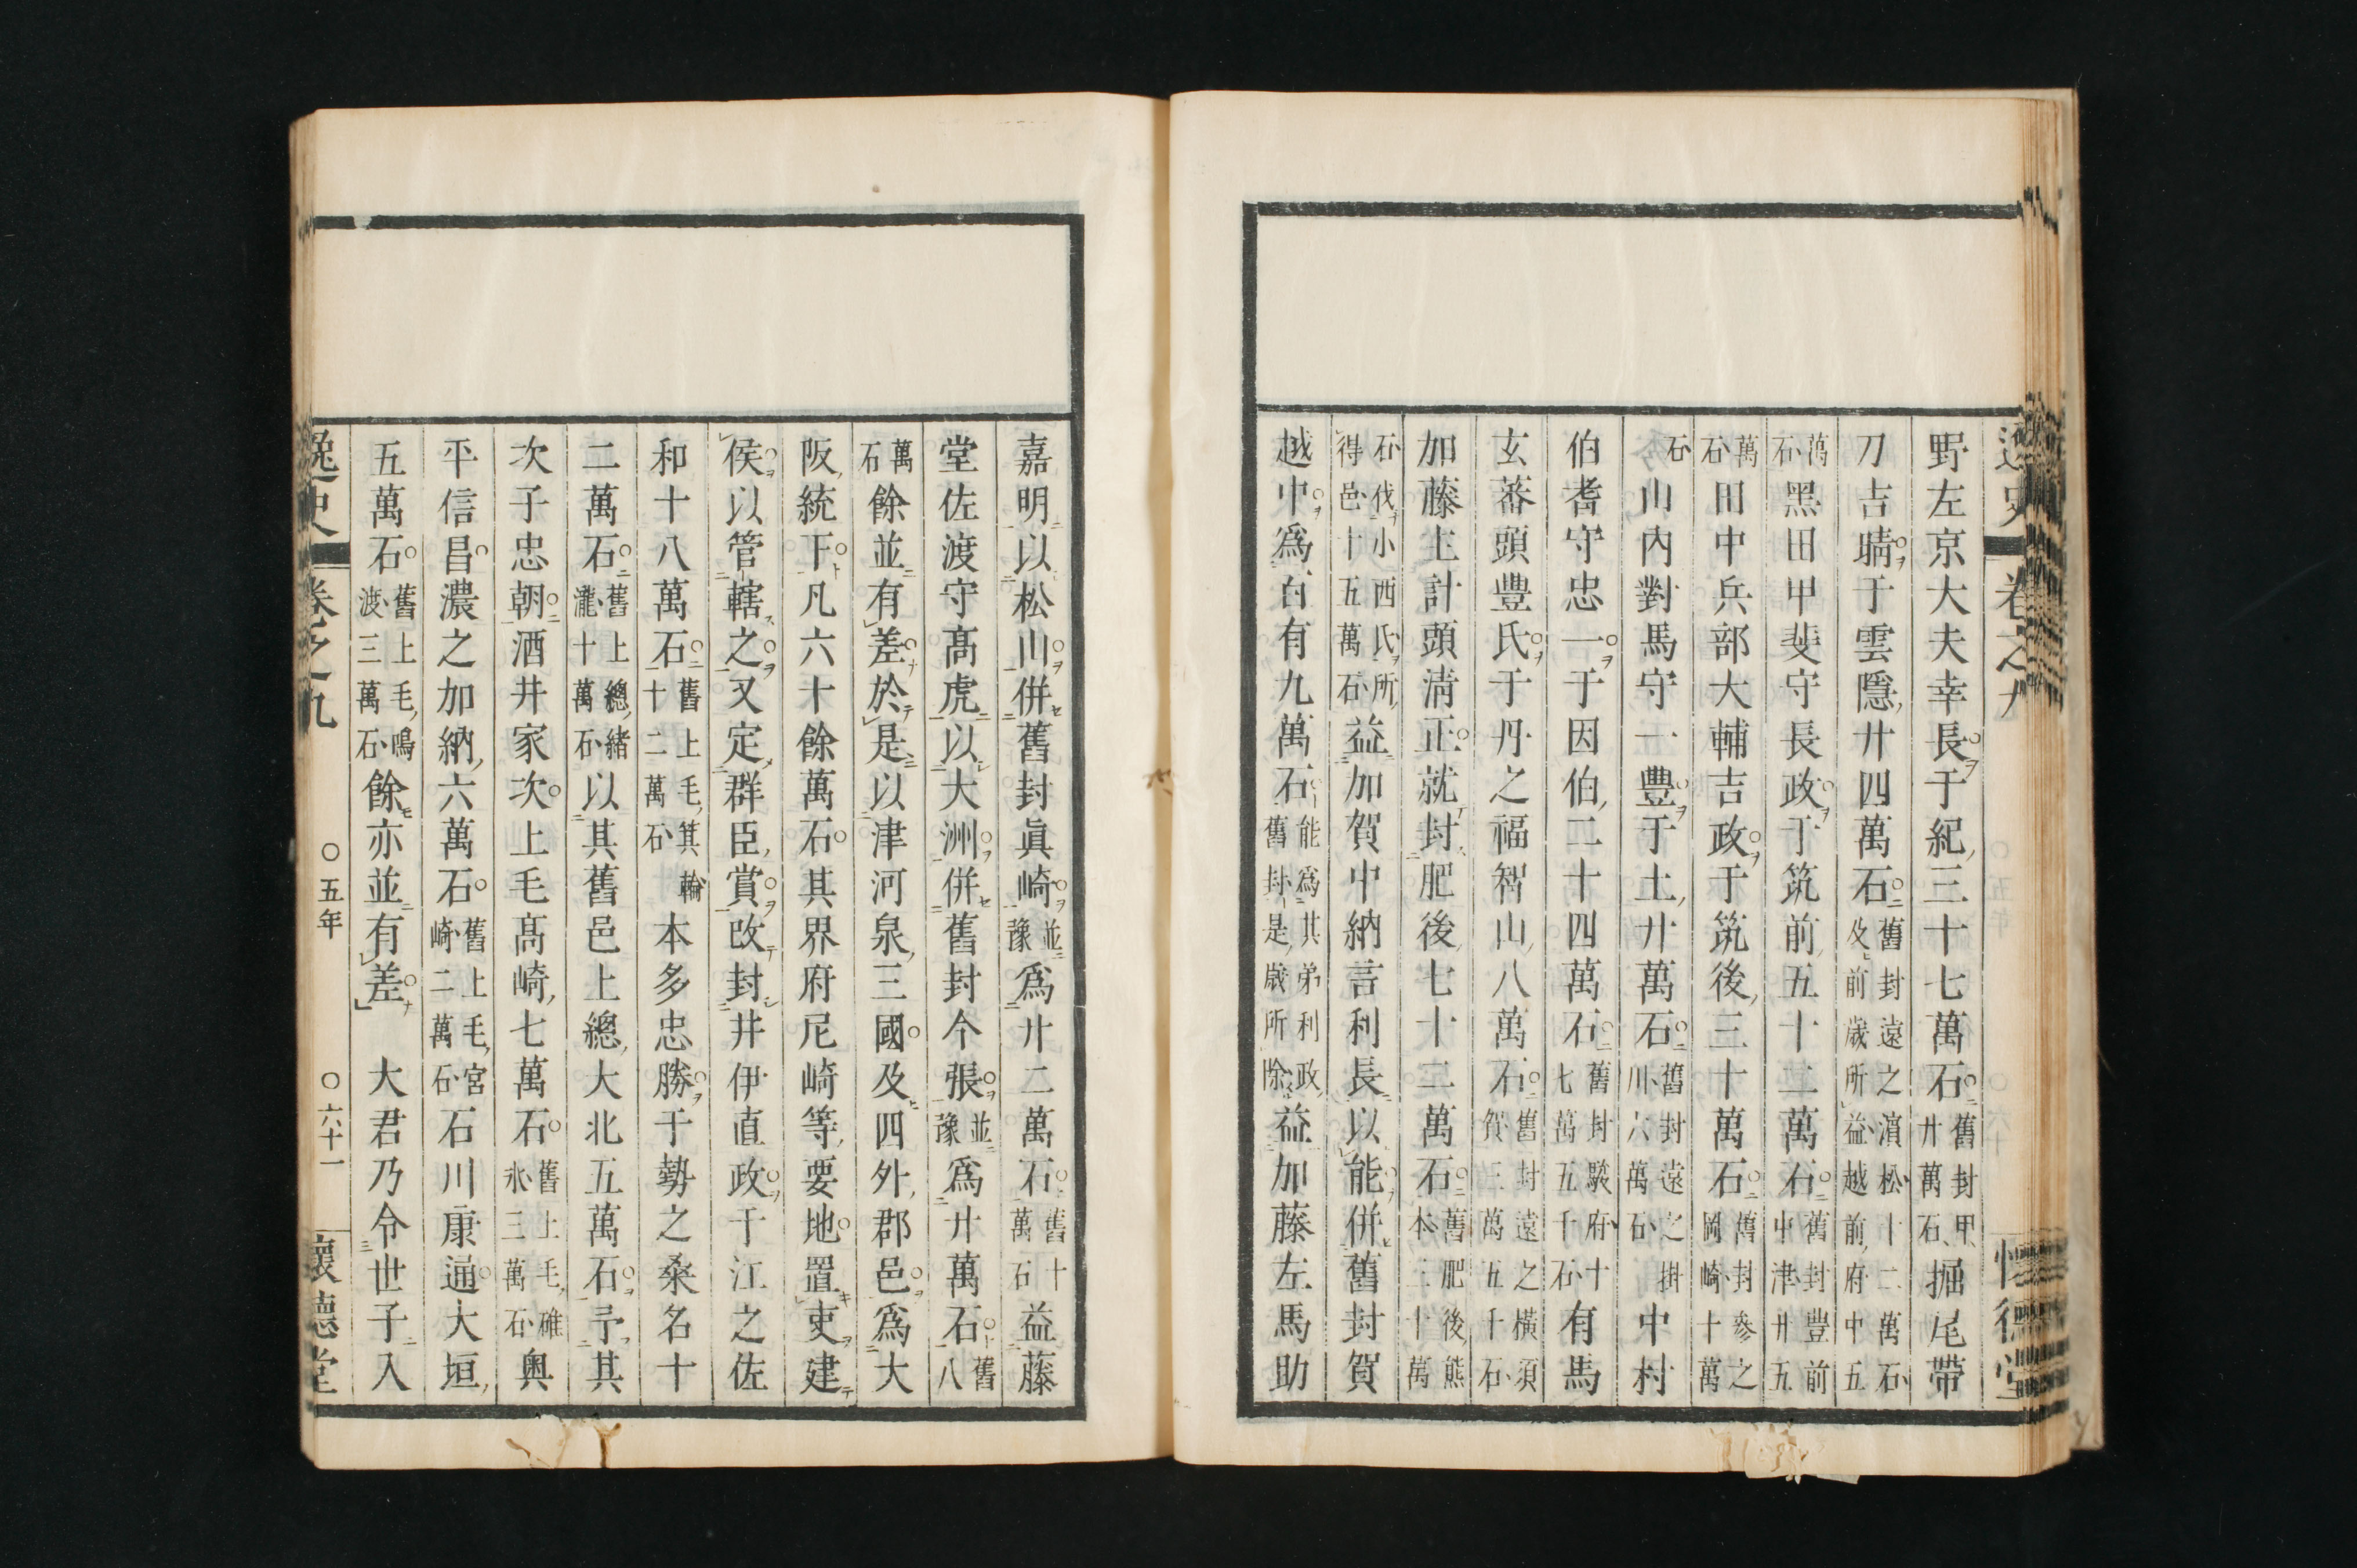 野左京大夫幸長于紀三十七萬石舊封甲廿萬石掘尾帶
刀吉晴于雲隱廿四萬石舊封遠之濵松十二萬石及前歲所益越前府中五
萬石黑田甲斐守長政于筑前五十二萬石舊封豐前中津廿五
萬石田中兵部大輔吉政于筑後三十萬石舊封參之岡崎十萬
石山內對馬守一豐于土廿萬石舊封遠之掛川六萬石中村
伯耆守忠一于因伯二十四萬石舊封駿府十七萬五千石有馬
玄蕃頭豐氏于丹之福智山八萬石舊封遠之橫須賀三萬五千石
加藤主計頭淸正就封肥後七十二萬石舊肥後熊本二十萬
石伐小西氏所得邑十五萬石益加賀中納言利長以能併舊封賀
越中爲百有九萬石能爲其弟利政舊封是歲所除益加藤左馬助
嘉明以松山併舊封眞崎並豫爲廿二萬石舊十萬石益藤
堂佐渡守髙虎以大洲併舊封今張並豫爲廿萬石舊八
萬石餘並有差於是以津河泉三國及四外郡邑爲大
阪統下凡六十餘萬石其界府尼崎等要地置吏建
侯以管轄之又定群臣賞改封井伊直政于江之佐
和十八萬石舊上毛箕輪十二萬石本多忠勝于勢之桑名十
二萬石舊上總緒瀧十萬石以其舊邑上總大北五萬石予其
次子忠朝酒井家次上毛髙崎七萬石舊上毛碓氷三萬石奧
平信昌濃之加納六萬石舊上毛宮崎二萬石石川康通大垣
五萬石舊上毛鳴渡三萬石餘亦並有差　大君乃令世子入
逸史　卷之九　〇五年　〇六十一　懷德堂